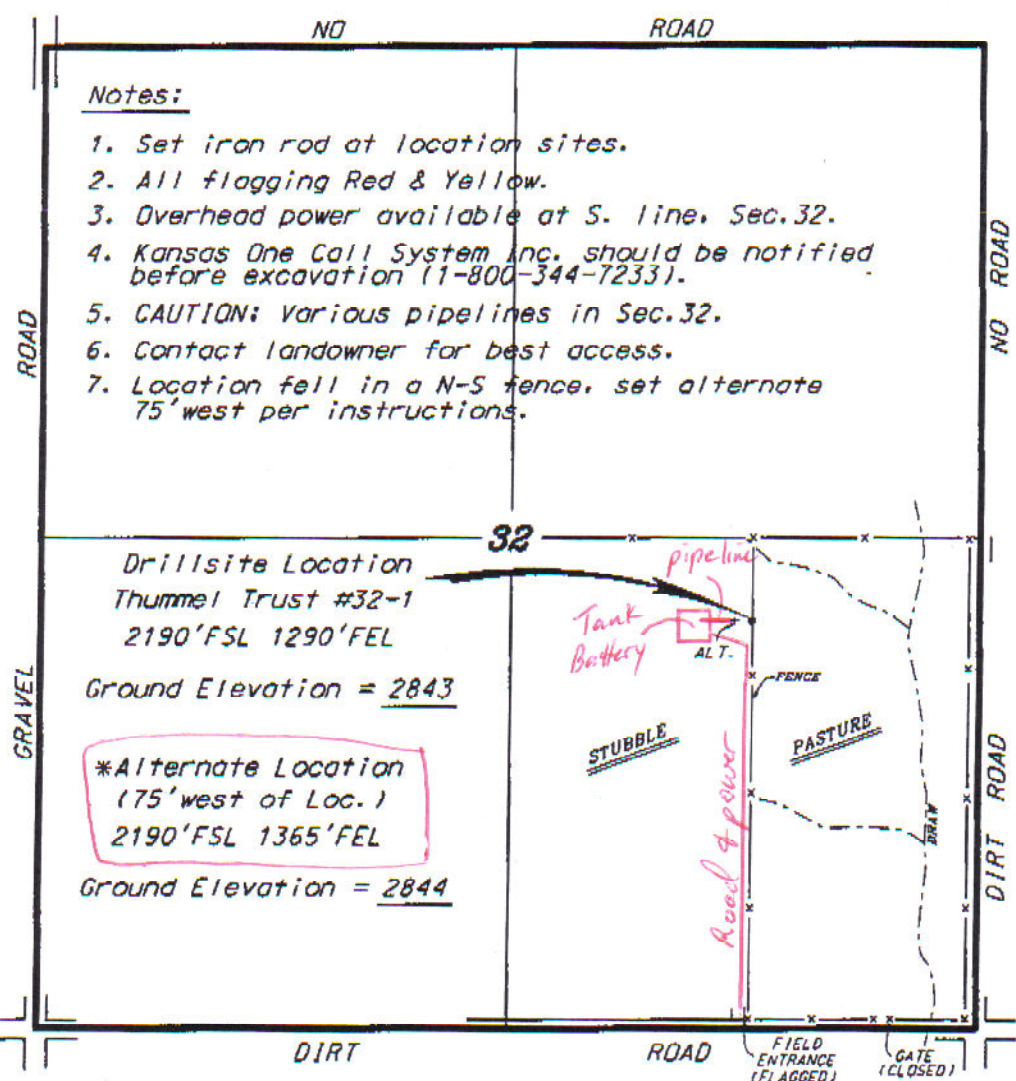 NO ROAD
Notes:
1. Set iron rod at location sites.
2. All flagging Red & Yellow.
3. Overhead power available at S. line, Sec.32.
4. Kansas One Call System Inc. should be notified
before excavation (1-800-344-7233).
5. CAUTION: Various pipelines in Sec.32.
6. Contact landowner for best access.
7. Location fell in a N-S fence, set alternate
75'west per instructions.
GRAVEL ROAD
NO ROAD
32
Drillsite Location
Thummel Trust #32-1
2190'FSL 1290'FEL
Ground Elevation = 2843
*Alternate Location
(75'west of Loc.)
2190'FSL 1365'FEL
Ground Elevation = 2844
pipeline
Tank
Battery
ALT.
FENCE
STUBBLE
PASTURE
Road & power
DRAW
DIRT ROAD
DIRT ROAD
FIELD
ENTRANCE
(FLAGGED)
GATE
(CLOSED)